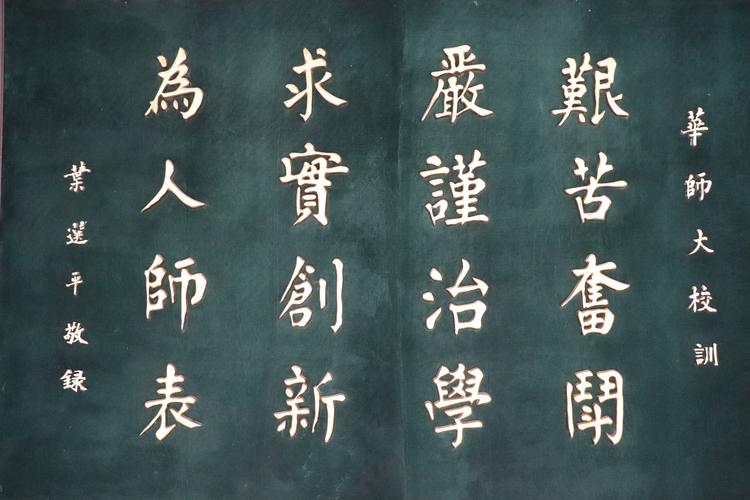 華師大校訓
艱苦奮鬥
嚴謹治學
求實創新
為人師表
葉選平敬録